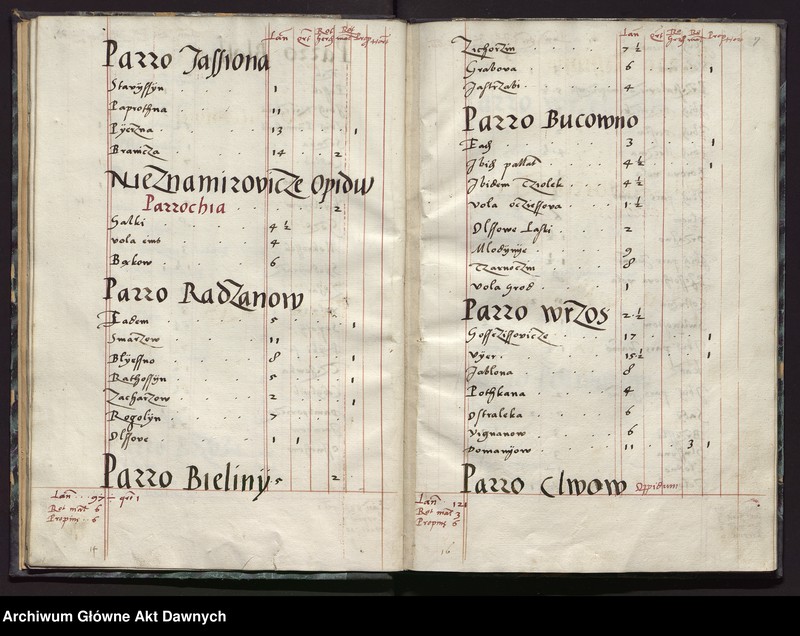 Lan qrt Rot herb Rot mal Propinat
Parro Jassiona
Starÿssÿn 1
Paprothna 11
Pÿerzna 13 1
Branicza 14 2
Nieznamirovicze opidu
Parrochia 2
Galki 4 ½
vola eius 4
Bąkow 6
Parro Radzanow
Eadem 5 1
Smarzow 11
Blÿessno 8 1
Rathossÿn 5 1
Zacharzow 2 1
Rogolÿn 7
Olssove 1 1
Parro Bielinÿ 5 2
Lan 97 qrt 1
Rot mal 6
Propin 6
14
Lan qrt Propinat
7 ½
Grabova 6 1
Jastrzabi 4
Parro Bucowno
Ead 3 1
Ibid 4 ½ 1
Ibidem 4 ½
vola 1 ½
Olssowe Laski 2
Mlodÿnÿe 9
8
vola Grod 1
Parro wrzos 2 ½
Gosseissovicze 17 1
Vÿer 15 ½ 1
Jablona 8
Pothkana 4
Ostraleka 6
Vignanow 6
Domanÿow 11 3 1
Parro Clwow Oppidum
Lan 121
Rot mal 3
Propin 6
16
Archiwum Główne Akt Dawnych